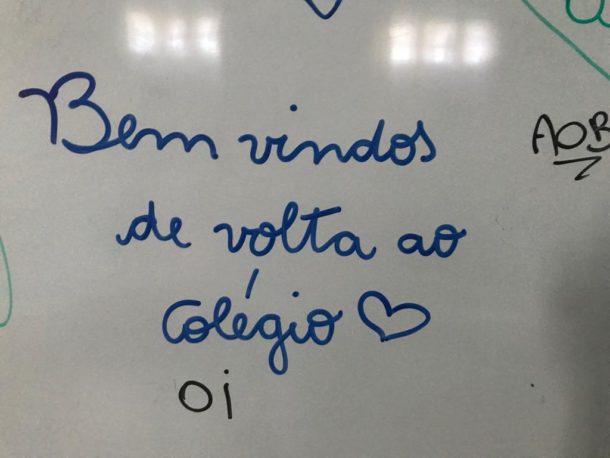 Bem vindos
AOB
de volta ao
colégio ♡
oi